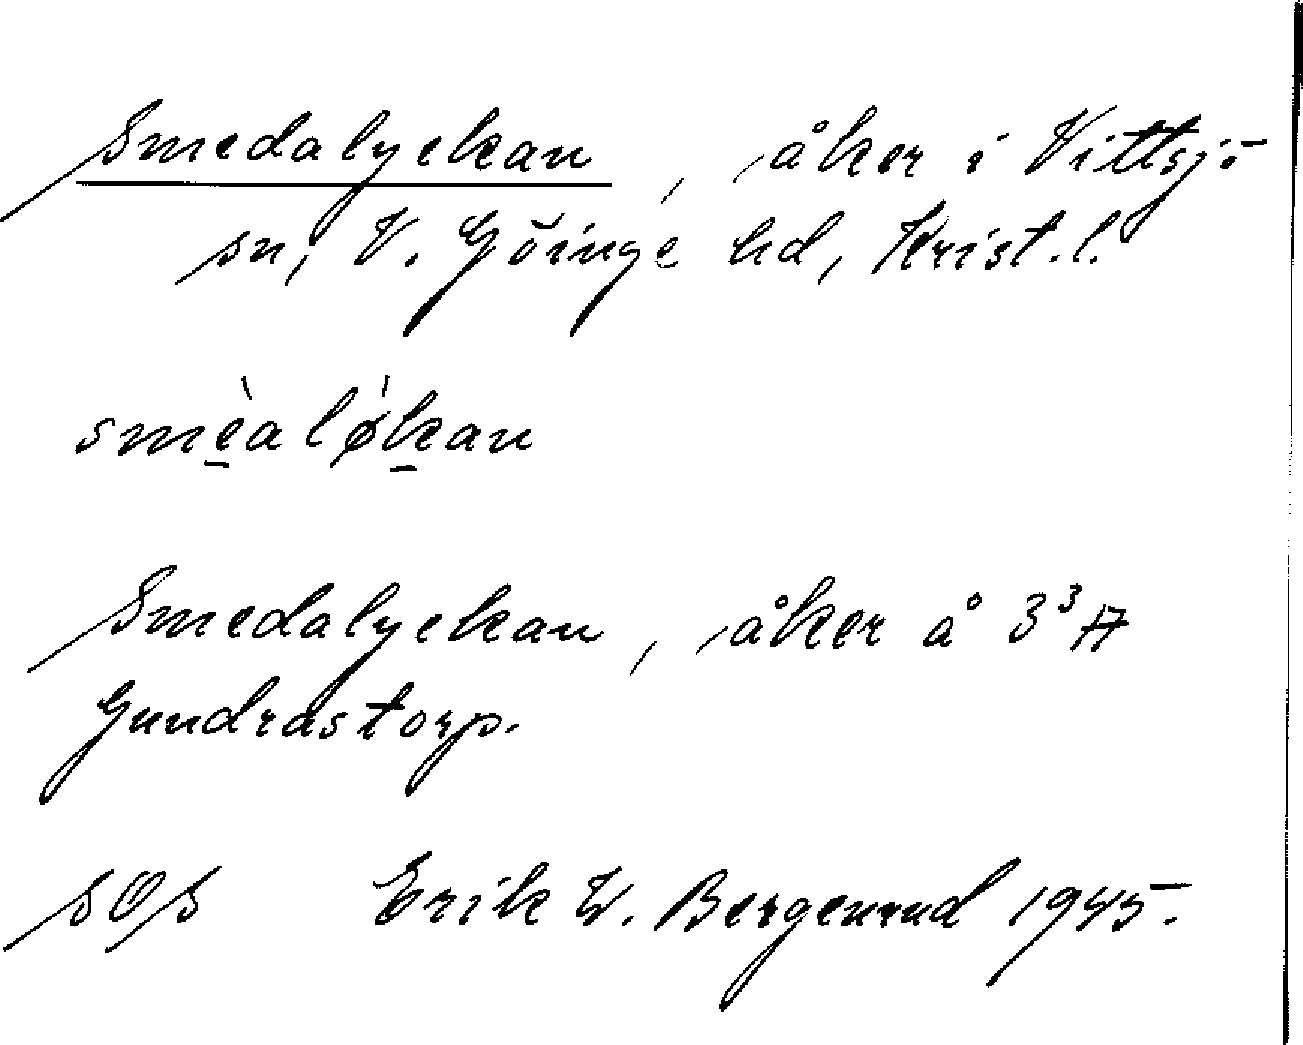 Smedalyckan, åker i Vittsjö
sn, V. Göinge hd, Krist. l.
smèaløkan
Smedalyckan, åker å 3³ A
Gundrastorp.
SOS Erik W. Bergenrud 1945.